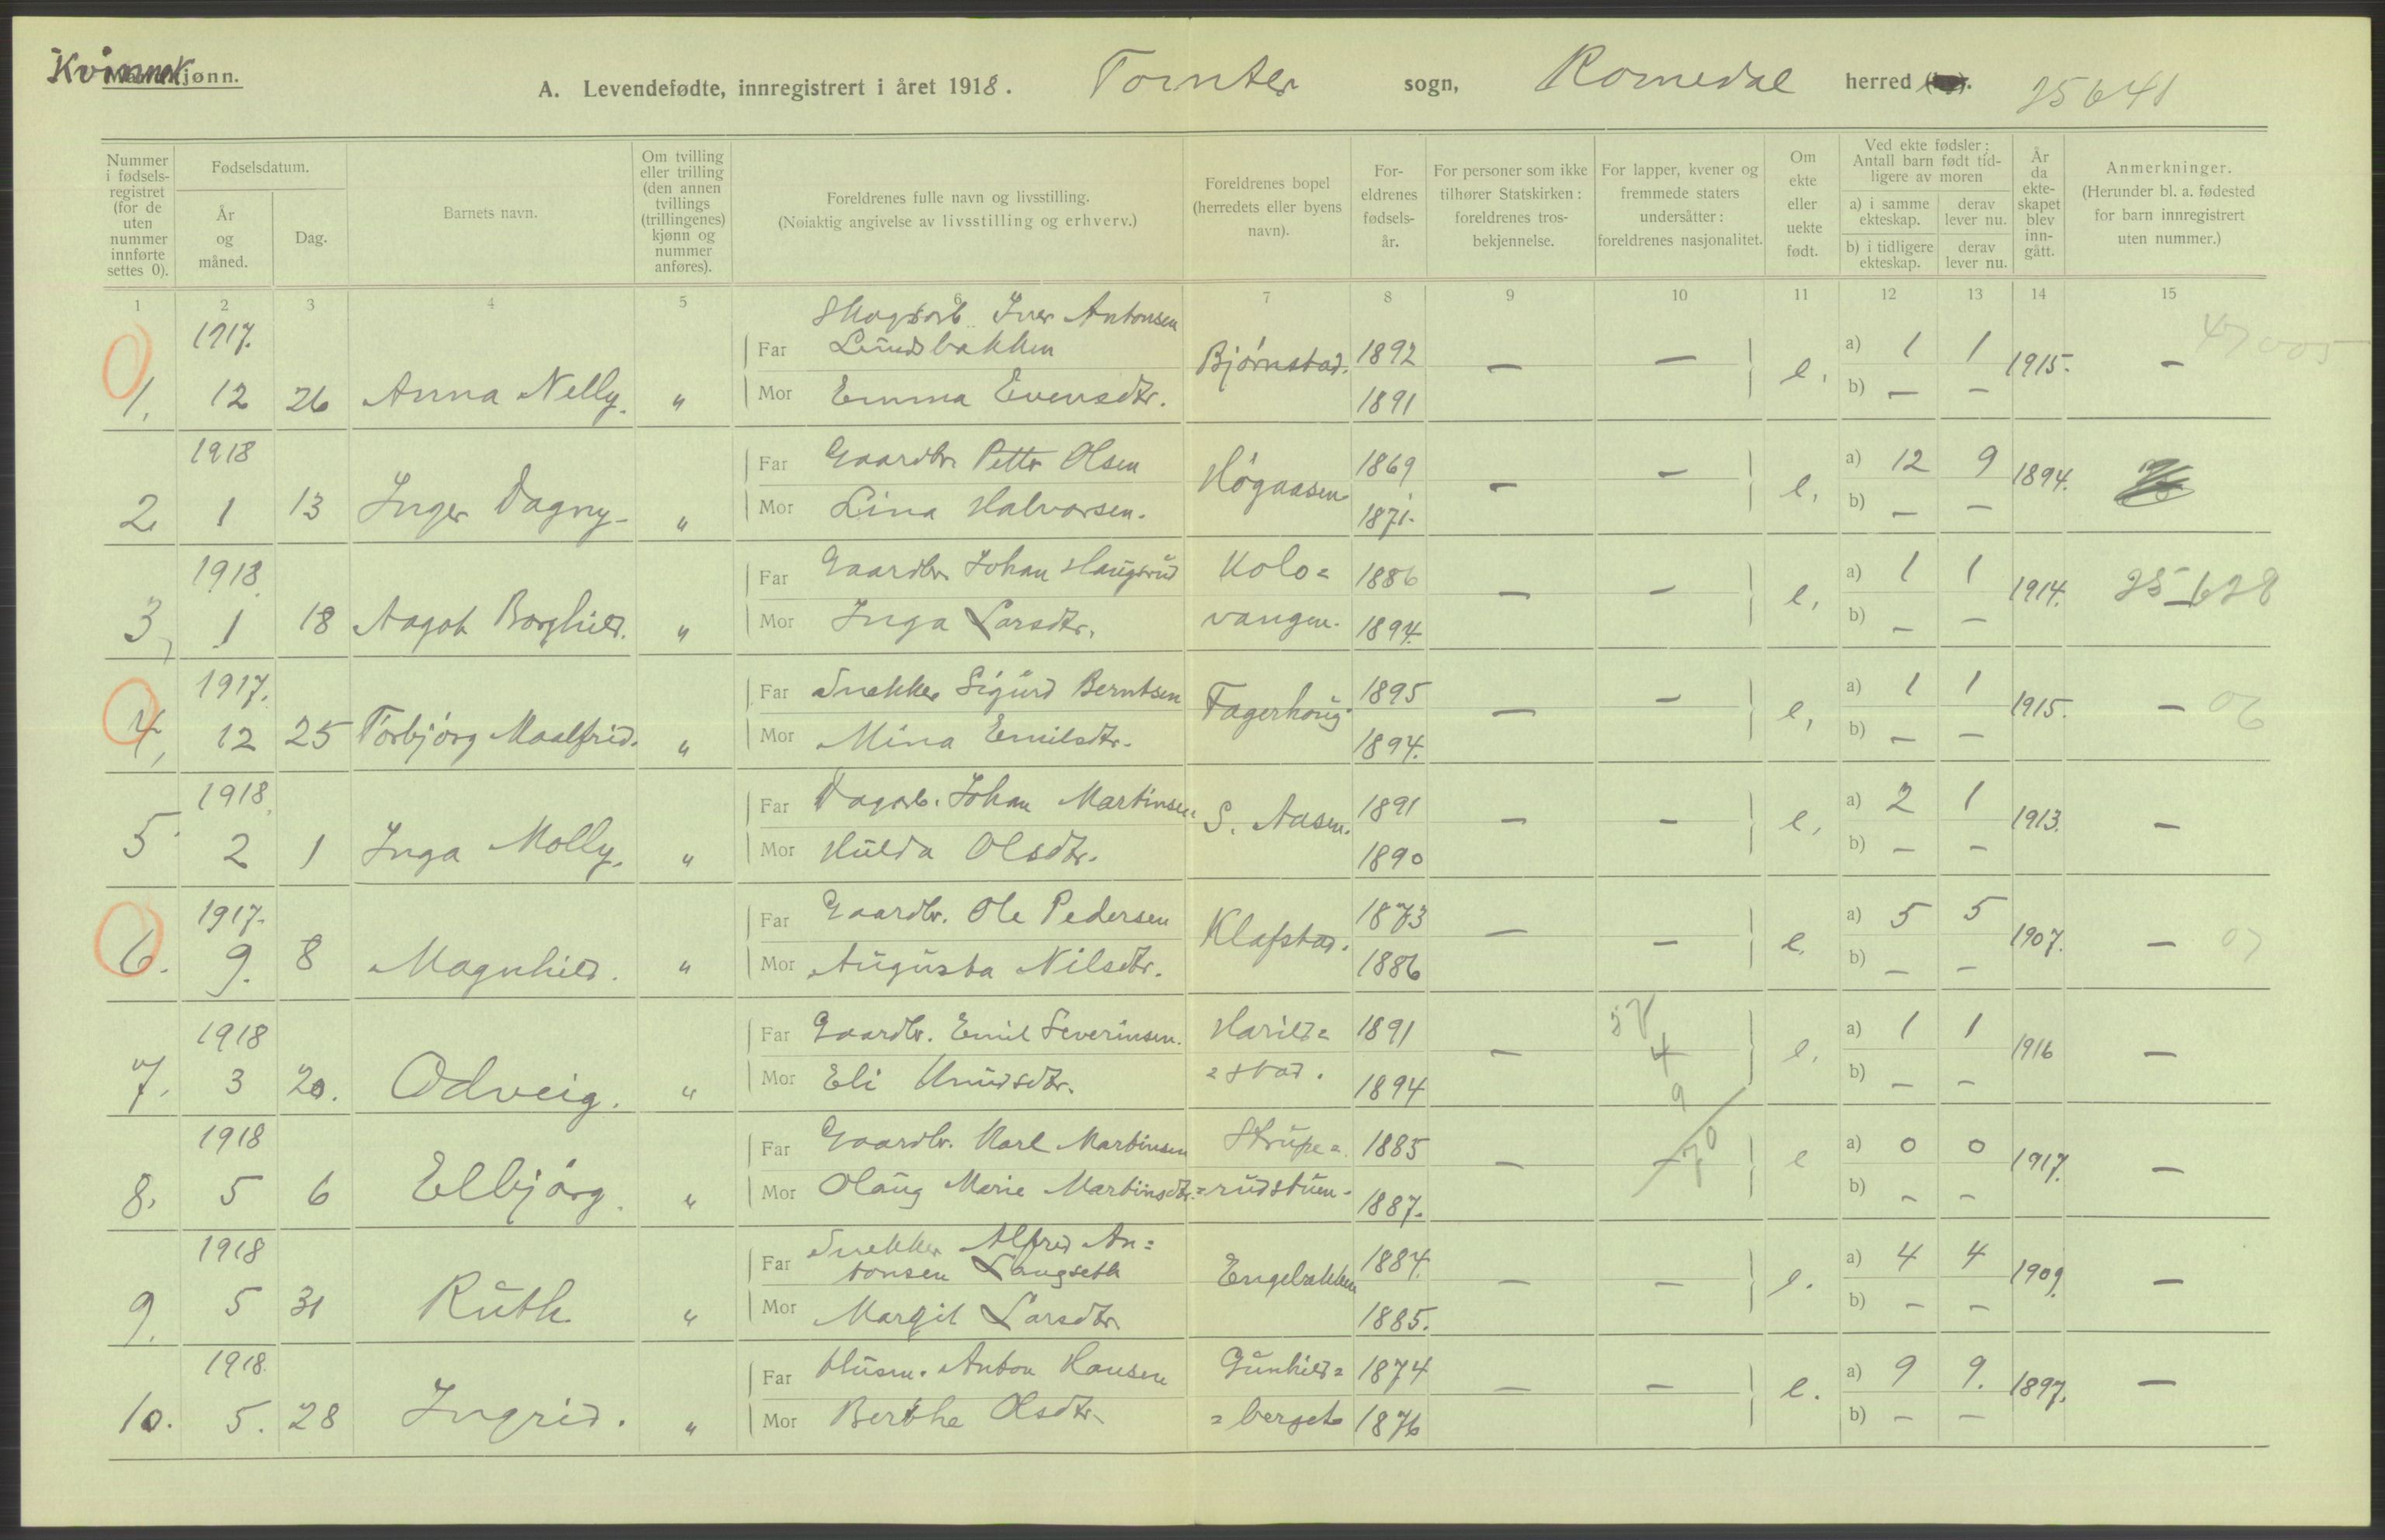 Kvinnek
Mannkjønn.
A. Levendefødte, innregistrert i året 1918. Tomter sogn, Romedal herred 25641
Nummer i fødsels-registret (for de uten nummer innførte settes 0).
Fødselsdatum.
År og måned.
Dag.
Barnets navn.
Om tvilling eller trilling (den annen tvillings (trillingenes) kjønn og nummer anføres).
Foreldrenes fulle navn og livsstilling.
(Nøiaktig angivelse av livsstilling og erhverv.)
Foreldrenes bopel (herredets eller byens navn).
For-eldrenes fødsels-år.
For personer som ikke tilhører Statskirken: foreldrenes tros-bekjennelse.
For lapper, kvener og fremmede staters undersåtter: foreldrenes nasjonalitet.
Om ekte eller uekte født.
Ved ekte fødsler: Antall barn født tid-ligere av moren
a) i samme ekteskap. derav lever nu.
b) i tidligere ekteskap. derav lever nu.
År da ekte-skapet blev inn-gått.
Anmerkninger.
(Herunder bl. a. fødested for barn innregistrert uten nummer.)
1 2 3 4 5 6 7 8 9 10 11 12 13 14 15
1917. Skogsarb. Iver Antonsen
Far Lundsbakken Bjørnstad. 1892 — — e. a) 1 1 1915. —
1. 12 26 Anna Nelly. " Mor Emma Evensdtr. 1891 b) — —
1918 Far Gaardbr. Petter Olsen Høgaasen 1869 — — e. a) 12 9 1894.
2 1 13 Inger Dagny " Mor Lina Halvorsen. 1871. b) — —
1918. Far Gaardbr. Johan Haugsrud Kolo= 1886 — — e. a) 1 1 1914. 25628
3, 1 18 Aagot Borghild. " Mor Inga Larsdtr. vangen. 1894. b) — —
1917. Far Snekker Sigurd Berntsen Fagerhaug 1895 — — e. a) 1 1 1915. — 06
4, 12 25 Torbjørg Maalfrid. " Mor Mina Emilsdtr. 1894. b) — —
1918. Far Dagarb. Johan Martinsen S. Aasen. 1891 — — e. a) 2 1 1913. —
5. 2 1 Inga Molly. " Mor Hulda Olsdtr. 1890 b) — —
1917. Far Gaardbr. Ole Pedersen Klafstad. 1873 — — e. a) 5 5 1907. — 07
6. 9. 8 Magnhild. " Mor Augusta Nilsdtr. 1886 b) — —
1918 Far Gaardbr. Emil Severinsen. Harild= 1891 — 4 e. a) 1 1 1916 —
7. 3 20. Odveig. " Mor Eli Knudsdtr. =stad. 1894 9 b) — —
1918 Far Gaardbr. Karl Martinsen Strupe= 1885 — — 70 e a) 0 0 1917. —
8. 5 6 Elbjørg. " Mor Olaug Marie Martinsdtr. =rudstuen. 1887. b) — —
1918 Far Snekker Alfred An=
tonsen Langseth Engebakken 1884. — — e. a) 4 4 1909. —
9. 5 31 Ruth " Mor Margit Larsdtr. 1885. b) — —
1918. Far Husm. Anton Hansen Gunhild= 1874 — — e. a) 9 9. 1897. —
10. 5. 28 Ingrid. " Mor Berthe Olsdtr. =berget 1876 b) — —